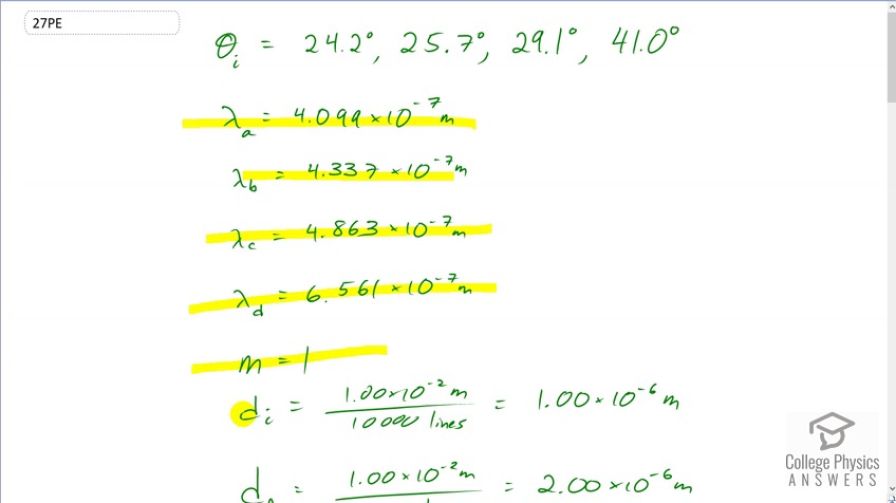 27PE
θᵢ = 24.2°, 25.7°, 29.1°, 41.0°
λₐ = 4.099 × 10⁻⁷ m
λ_b = 4.337 × 10⁻⁷ m
λ_c = 4.863 × 10⁻⁷ m
λ_d = 6.561 × 10⁻⁷ m
m = 1
dᵢ = 1.00×10⁻² m / 10000 lines = 1.00 × 10⁻⁶ m
d = 1.00 × 10⁻² m = 2.00 × 10⁻⁶ m
College Physics
ANSWERS